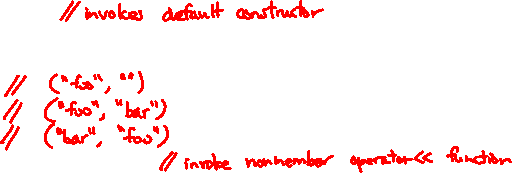 // invokes default constructor
// ("foo", "")
// ("foo", "bar")
// ("bar", "foo")
// invoke nonmember operator<< function